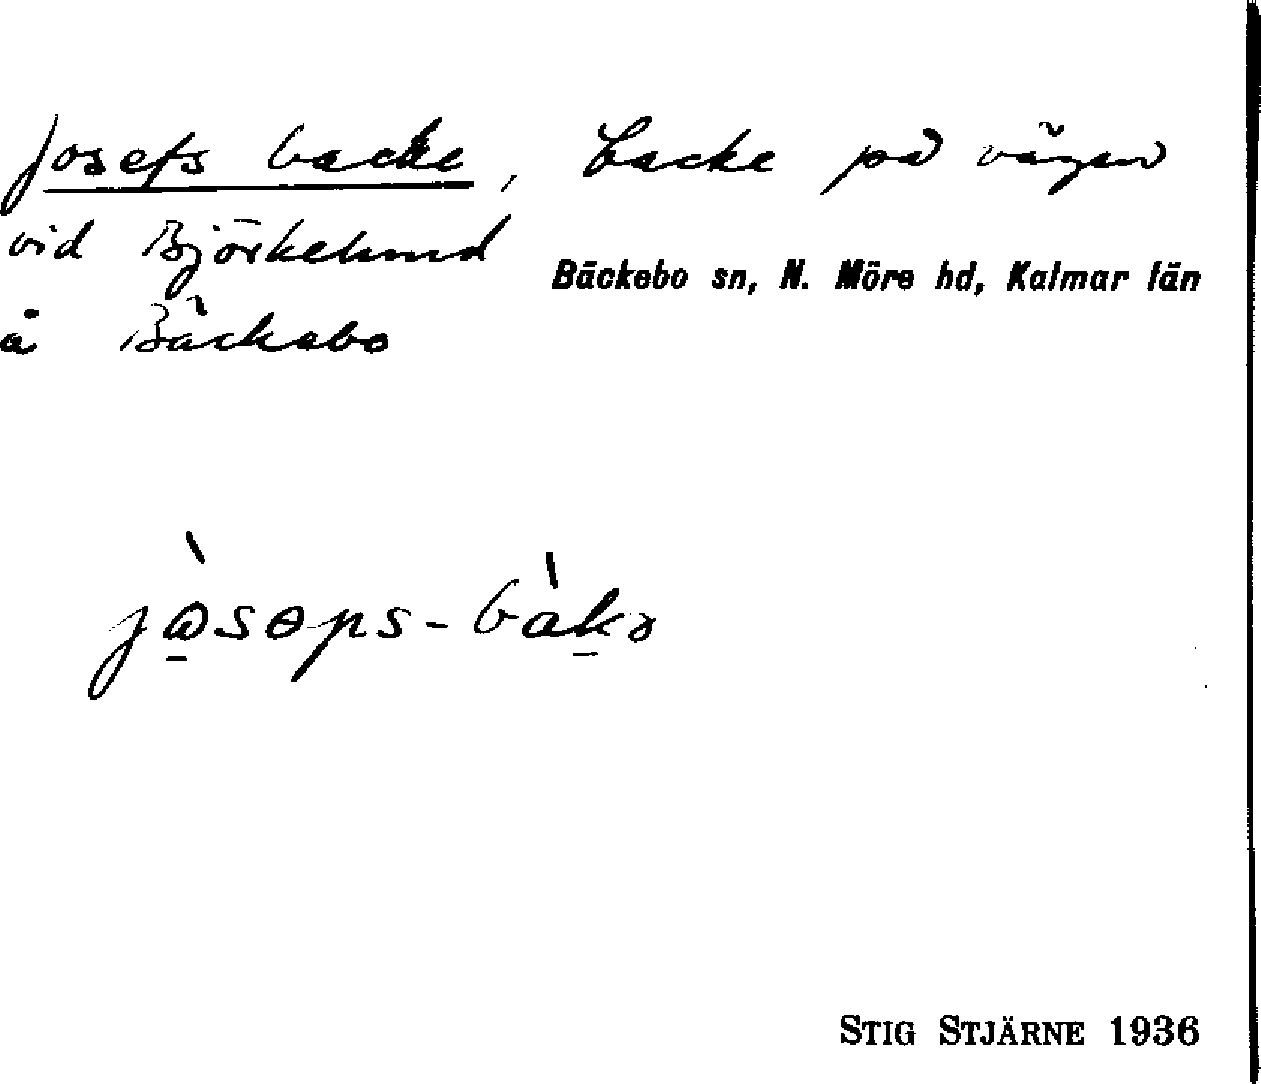 Josefs backe, backe på vägen
vid Björkelund
Bäckebo sn, N. Möre hd, Kalmar län
å Bäckebo
jὼsɵps-bàkə
STIG STJÄRNE 1936